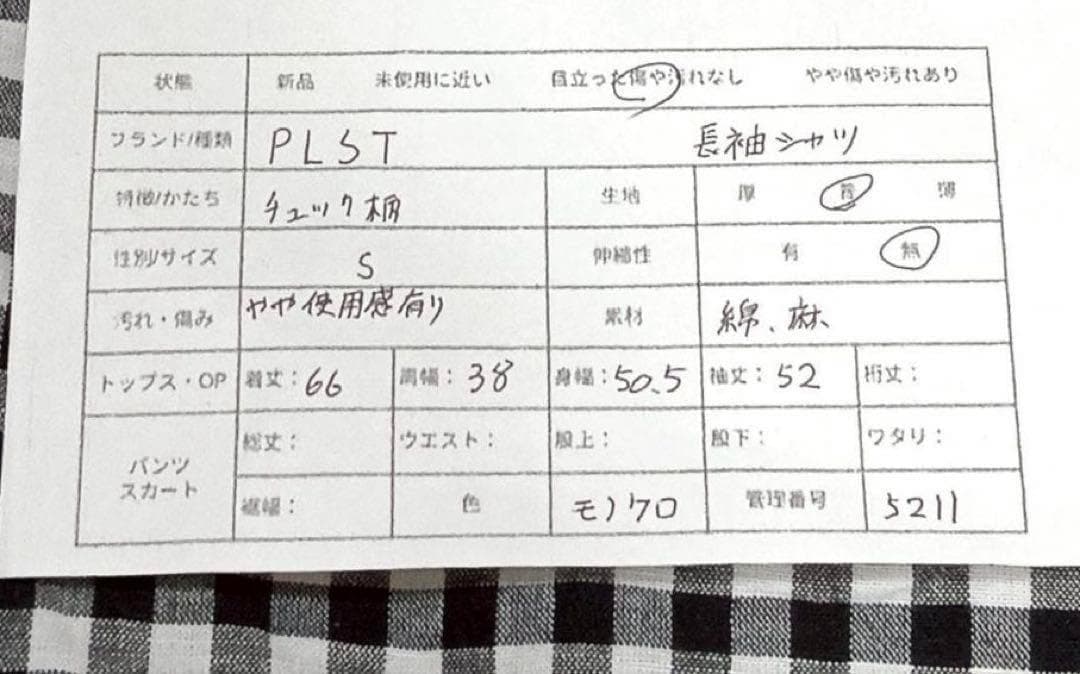 状態 新品 未使用に近い 目立った傷や汚れなし やや傷や汚れあり
ブランド/種類 PLST 長袖シャツ
特徴/かたち チェック柄 生地 厚 普 薄
性別/サイズ S 伸縮性 有 無
汚れ・傷み やや使用感有り 素材 綿、麻
トップス・OP 着丈：66 肩幅：38 身幅：50.5 袖丈：52 裄丈：
パンツ スカート 総丈： ウエスト： 股上： 股下： ワタリ：
裾幅： 色 モノクロ 管理番号 5211